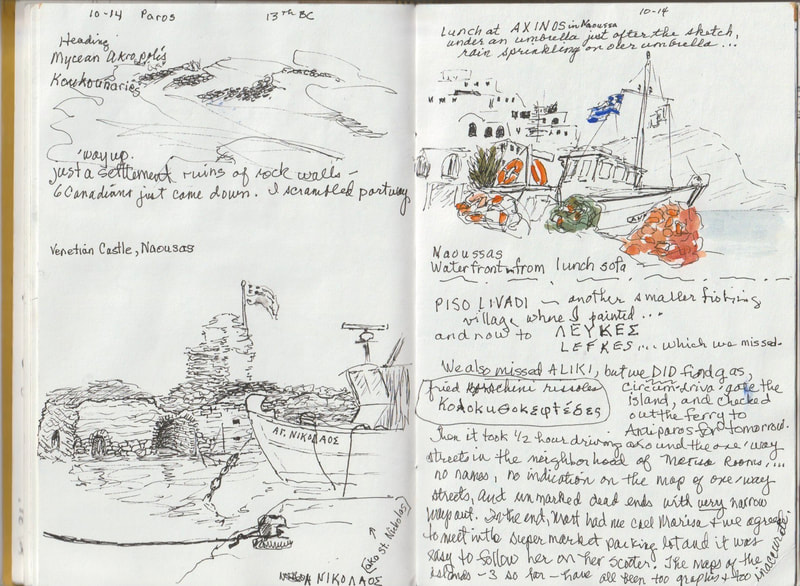 10-14 Paros 13TH BC
Heading
Mycean Akropolis
Koukounaries
'way up.
just a settlement ruins of rock walls -
6 Canadians just came down. I scrambled partway
Venetian Castle, Naousas
ΑΓ. ΝΙΚΟΛΑΟΣ
(aka St. Nicholas)
ΝΙΚΟΛΑΟΣ
10-14
Lunch at AXINOS in Naoussa
under an umbrella just after the sketch,
rain sprinkling on our umbrella...
Naoussas
Waterfront from lunch sofa
PISO LIVADI - another smaller fishing
village where I painted...
and now to ΛΕΥΚΕΣ
LEFKES... which we missed.
We also missed ALIKI, but we DID find gas,
fried rissoles
circum-driva-gate the
Island, and checked
out the ferry to
Antiparos for tomorrow.
Then it took 1/2 hour driving around the one-way
streets in the neighborhood of Marisa Rooms,...
no names, no indication on the map of one/way
streets, and unmarked dead ends with very narrow
way out. In the end, Mart had me call Marisa & we agreed
to meet in the Super market parking lot and it was
easy to follow her on her scooter. The maps of the
islands - 3 so far - have all been too graphic & too inaccurate.